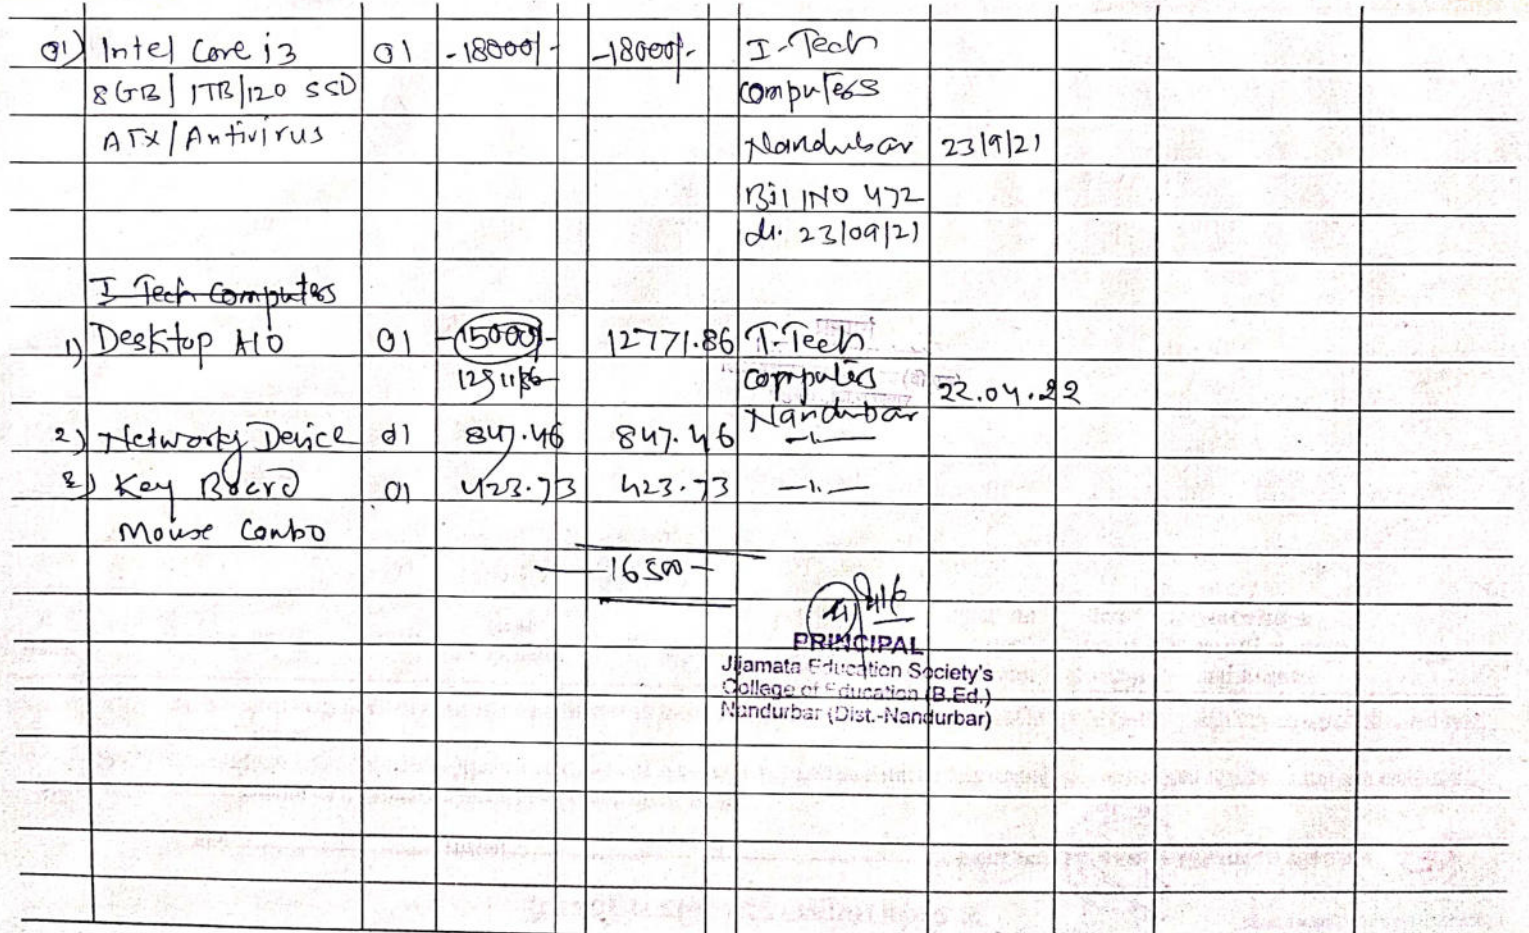 01) Intel Core i3 01 -18000/- -18000/- I-Tech
8GB/ 1TB/120 SSD computers
ATX/Antivirus Nandubar 23/9/21
Bill NO 472
dt. 23/09/21
I Tech Computers
1) Desktop AIO 01 -15000/- 12771.86 I-Tech
computers 22.04.22
Nandubar
2) Networky Device 01 847.46 847.46 -"-
3) Key Board 01 423.73 423.73 -"-
Mouse Combo
16500-
PRINCIPAL
Jijamata Education Society's
College of Education (B.Ed.)
Nandurbar (Dist.-Nandurbar)